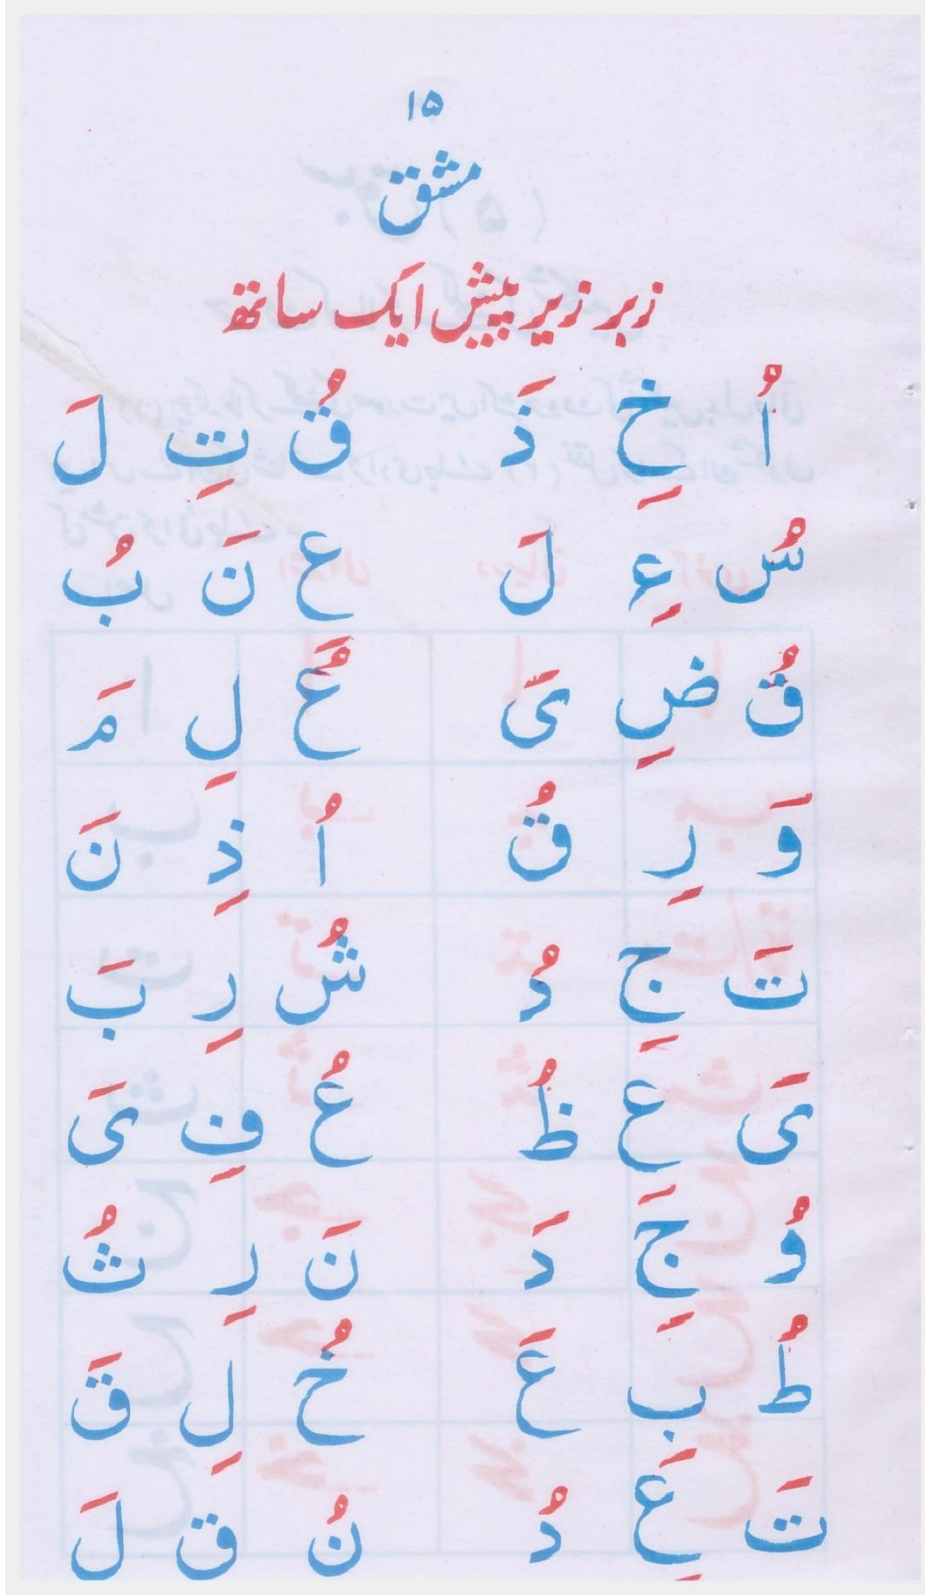 ۱۵
مشق
زبر زیر پیش ایک ساتھ
اُ خِ ذَ قُ تِ لَ
سُ ءِ لَ عِ نَ بُ
قُ ضِ یَ عُ لِ مَ
وَ رِ قُ اُ ذِ نَ
تَ جِ دُ شُ رِ بَ
یَ عِ ظُ عُ فِ یَ
وُ جِ دَ نَ رِ ثُ
طُ بِ عَ خُ لِ قَ
تَ عِ دُ نُ ق لَ